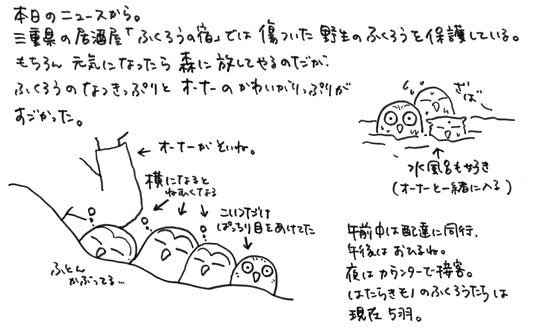 本日のニュースから。
三重県の居酒屋「ふくろうの宿」では傷ついた野生のふくろうを保護している。
もちろん元気になったら森に放してやるのだが、
ふくろうのなつきっぷりとオーナーのかわいがりっぷりが
すごかった。
オーナーがそいね。
横になると
ねむくなる
こいつだけ
ぱっちり目をあけてた
ふとん
かぶってる…
ざば
水風呂も好き
(オーナーと一緒に入る)
午前中は配達に同行、
午後はおひるね。
夜はカウンターで接客。
はたらきモノのふくろうたちは
現在5羽。